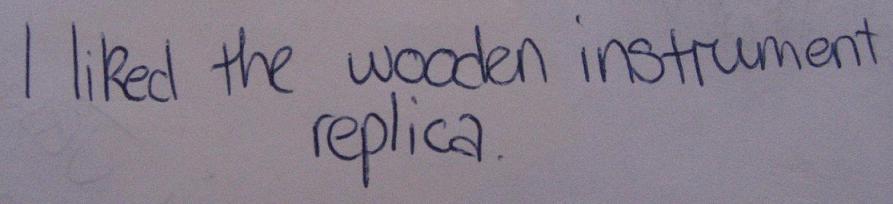 I liked the wooden instrument
replica.